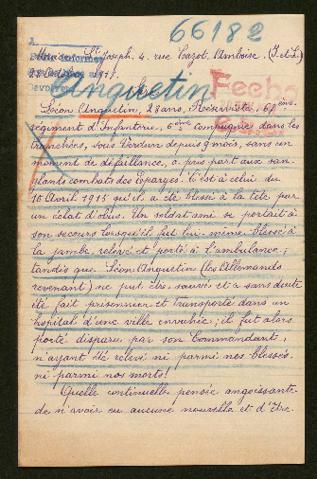 66182
St Joseph, 4, rue Cazot, Amboise, (I.et L.)
Anquetin
Léon Anquetin, 28 ans, Réserviste, 67ème
régiment d'Infanterie, 6ème compagnie, dans les
tranchées, sous Verdun depuis 9 mois, sans un
moment de défaillance, a pris part aux san-
glants combats des Eparges. C'est à celui du
10 Avril 1915 qu'il a été blessé à la tête par
un éclat d'obus. Un soldat ami se portait à
son secours lorsqu'il fut lui-même blessé à
la jambe, relevé et porté à l'ambulance;
tandis que Léon Anquetin (les Allemands
revenant) ne put être sauvé et a sans doute
été fait prisonnier et transporté dans un
hopital d'une ville envahie; il fut alors
porté disparu par son Commandant,
n'ayant été relevé ni parmi nos blessés
ni parmi nos morts!
Quelle continuelle pensée angoissante
de n'avoir eu aucune nouvelle et d'être